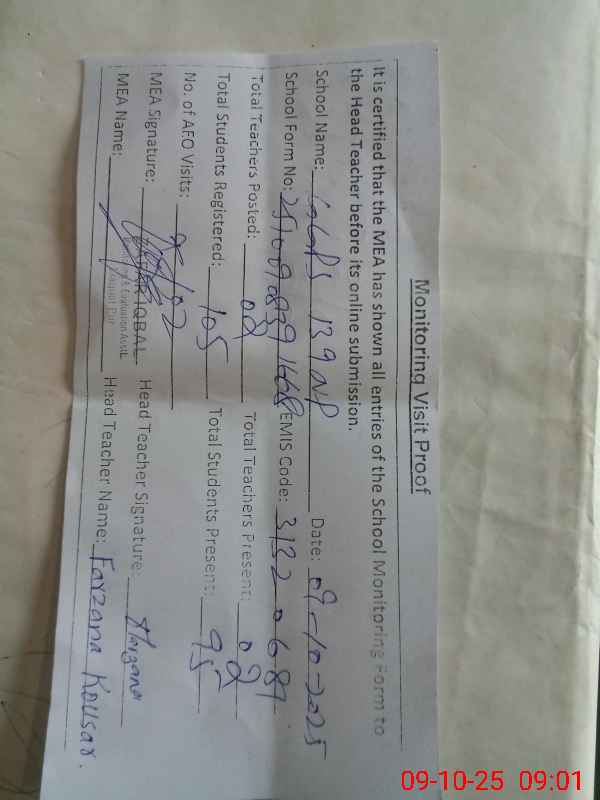 Monitoring Visit Proof
It is certified that the MEA has shown all entries of the School Monitoring Form to
the Head Teacher before its online submission.
School Name: GGPS 139 NP Date: 09-10-2025
School Form No: 25100908391668 EMIS Code: 31320689
Total Teachers Posted: 02 Total Teachers Present: 02
Total Students Registered: 105 Total Students Present: 95
No. of AEO Visits:
MEA Signature: Head Teacher Signature: Farzana
MEA Name: IQBAL Head Teacher Name: Farzana Kousar.
09-10-25 09:01